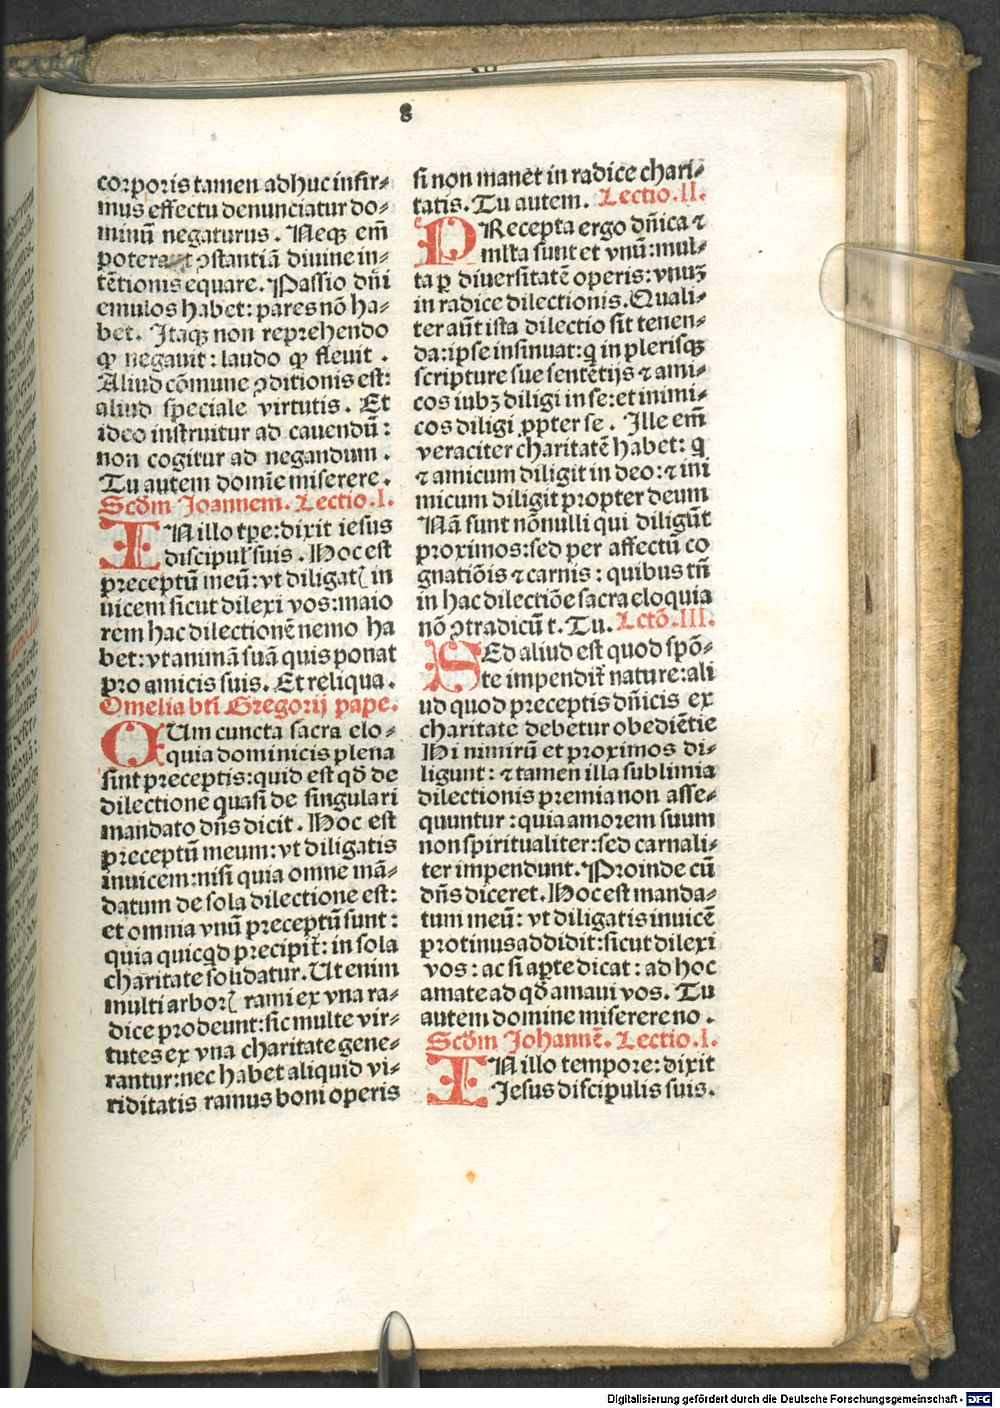 8
corporis tamen adhuc infir⸗
mus effectu denunciatur do⸗
minū negaturus. Neqꝫ em̄
poterat ꝯstantiā diuine in⸗
tētionis equare. Passio dn̄i
emulos habet: pares nō ha⸗
bet. Itaqꝫ non reprehendo
ꝙ negauit: laudo ꝙ fleuit.
Aliud cōmune ꝯditionis est:
aliud speciale virtutis. Et
ideo instruitur ad cauendū:
non cogitur ad negandum.
Tu autem domie miserere.
Scd̄m Joannem. Lectio. I.
IN illo tp̄e: dixit iesus
discipul' suis. Hoc est
preceptū meū: vt diligatꝭ in
uicem sicut dilexi vos: maio
rem hac dilectionē nemo ha
bet: vt animā suā quis ponat
pro amicis suis. Et reliqua.
Omelia bt̄i Gregorij pape.
CUm cuncta sacra elo⸗
quia dominicis plena
sint preceptis: quid est qd̄ de
dilectione quasi de singulari
mandato dn̄s dicit. Hoc est
preceptū meum: vt diligatis
inuicem: nisi quia omne mā⸗
datum de sola dilectione est:
et omnia vnū preceptū sunt:
quia quicqd precipit̄: in sola
charitate solidatur. Ut enim
multi arborꝭ rami ex vna ra⸗
dice prodeunt: sic multe vir⸗
tutes ex vna charitate gene⸗
rantur: nec habet aliquid vi⸗
riditatis ramus boni operis
si non manet in radice chari⸗
tatis. Tu autem. Lectio. II.
PRecepta ergo dn̄ica ⁊
ml̄ta sunt et vnū: mul⸗
ta ꝑ diuersitatē operis: vnuꝫ
in radice dilectionis. Quali⸗
ter aūt ista dilectio sit tenen⸗
da: ipse insinuat: q̇ in plerisqꝫ
scripture sue sentētijs ⁊ ami⸗
cos iubꝫ diligi in se: et inimi⸗
cos diligi ꝓpter se. Ille em̄
veraciter charitatē habet: q̇
⁊ amicum diligit in deo: ⁊ ini
micum diligit propter deum
Nā sunt nōnulli qui diligūt
proximos: sed per affectū co
gnatiōis ⁊ carnis: quibus tn̄
in hac dilectiōe sacra eloquia
nō ꝯtradicūt. Tu. Lctō. III.
SEd aliud est quod spō⸗
te impendit̄ nature: ali
ud quod preceptis dn̄icis ex
charitate debetur obediētie
Hi nimirū et proximos di⸗
ligunt: ⁊ tamen illa sublimia
dilectionis premia non asse⸗
quuntur: quia amorem suum
non spiritualiter: sed carnali⸗
ter impendunt. Proinde cū
dn̄s diceret. Hoc est manda⸗
tum meū: vt diligatis inuicē
protinus addidit: sicut dilexi
vos: ac si aꝑte dicat: ad hoc
amate ad qd̄ amaui vos. Tu
autem domine miserere no.
Scd̄m Johannē. Lectio. I.
IN illo tempore: dixit
Jesus discipulis suis.
Digitalisierung gefördert durch die Deutsche Forschungsgemeinschaft - DFG